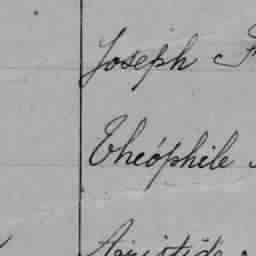 Joseph
Théophile
Aristide